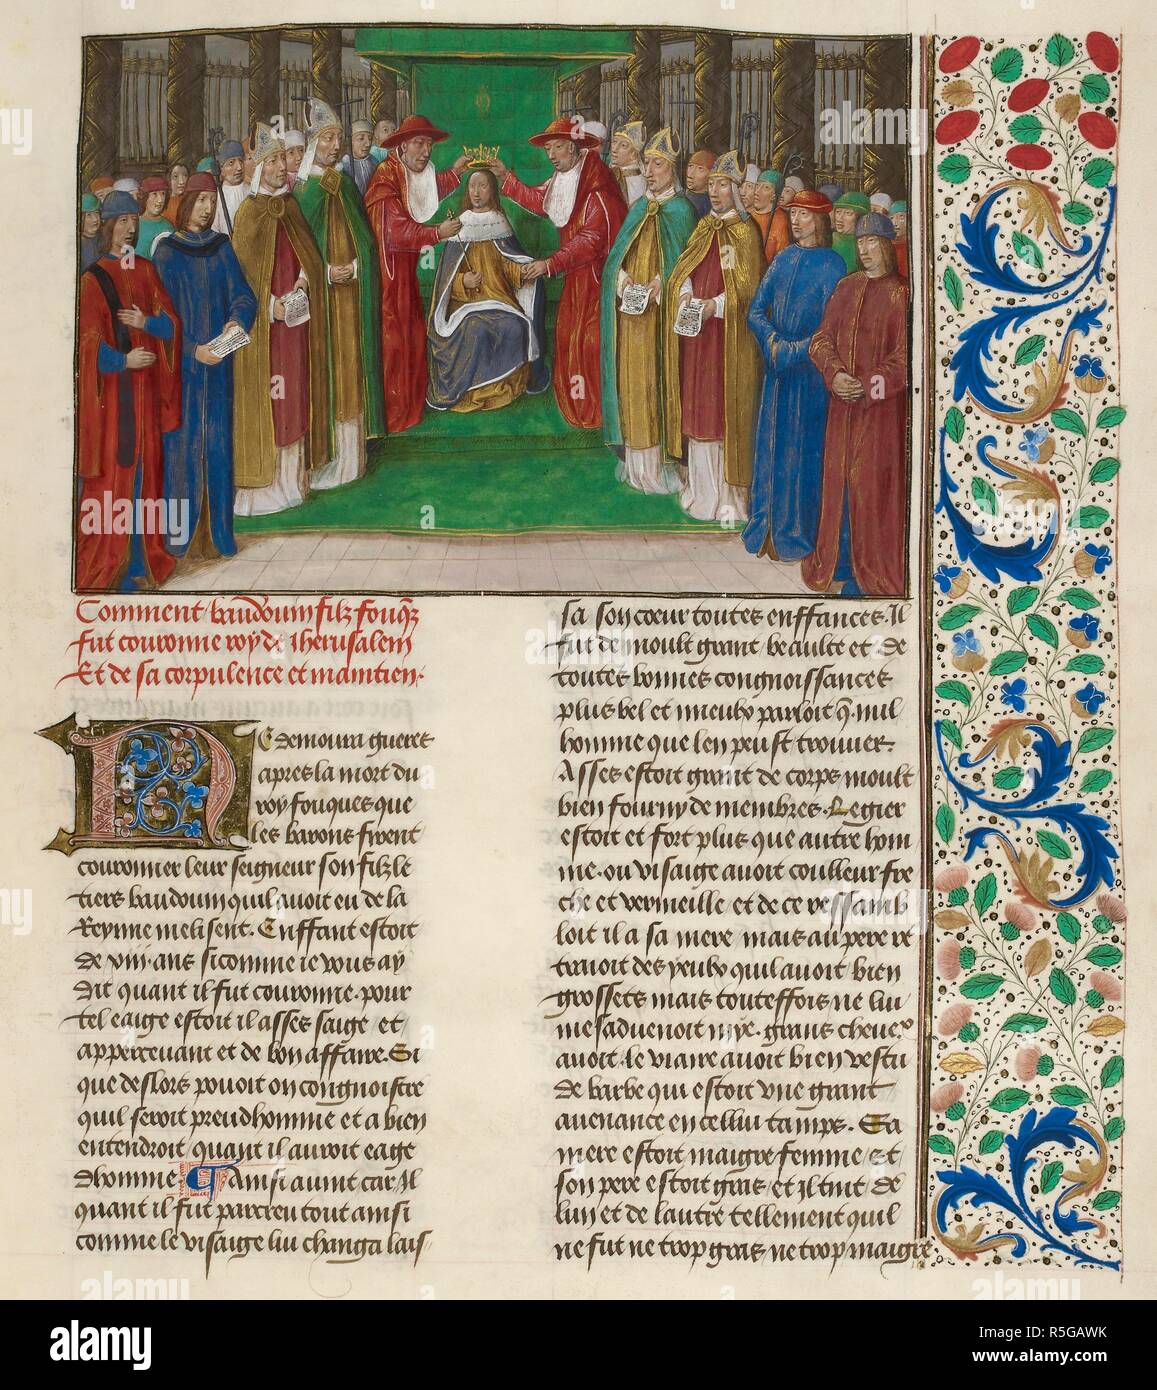 Comment baudouin filz fouq̃s
fut couronne roy de iherusalem
Et de sa corpulence et maintien.
NE demoura gueres
apres la mort du
roy fouques que
les barons firent
couronner leur seigneur son filz le
tiers baudouin quil auoit eu de la
Reyne melisent. Enffant estoit
de viii. ans si comme ie vous ay
dit quant il fut couronne. pour
tel eaige estoit il asses saige et
apperceuant et de bon affaire. Si
que deslors pouoit on congnoistre
quil seroit preudhomme et a bien
entendroit quant il auroit eage
dhomme. Tainsi auint car Il
quant il fut parcreu tout ainsi
comme le visaige lui changa lais-
sa son coeur toutes enffances. Il
fut de moult grant beaulte et de
toutes bonnes congnoissances
plus bel et mieulx parloit q̃ nul
homme que len peust trouuer.
Asses estoit grant de corps moult
bien fourny de membres. Legier
estoit et fort plus que autre hom
me. ou visaige auoit coulleur fre
che et vermeille et de ce ressamb
loit il a sa mere mais au pere re
traioit des yeulx quil auoit bien
grossets mais touteffois ne lui
mesaduenoit mye. grans cheuex
auoit. le viaire auoit bien vestu
de barbe qui estoit vne grant
auenance en cellui tamps. Sa
mere estoit maigre femme et
son pere estoit gras et il tint de
lun et de lautre tellement quil
ne fut ne trop gras ne trop maigre
alamy
Image ID: R5GAWK
www.alamy.com